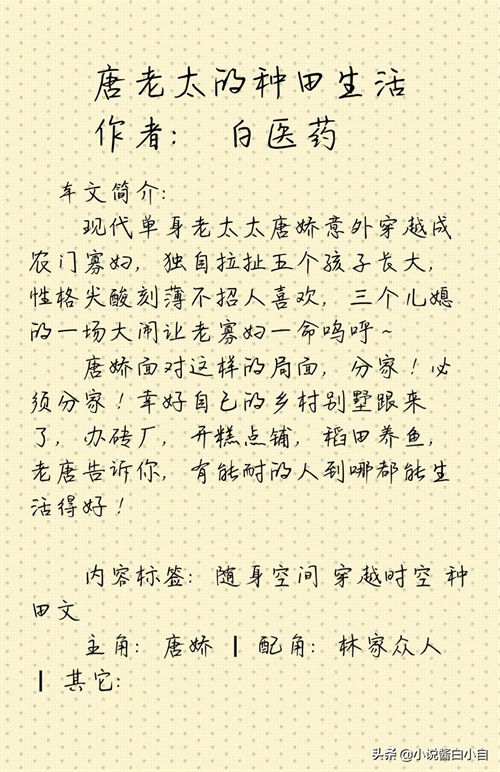 唐老太的种田生活
作者: 白医药
本文简介:
现代单身老太太唐娇意外穿越成
农门寡妇,独自拉扯五个孩子长大,
性格尖酸刻薄不招人喜欢,三个儿媳
的一场大闹让老寡妇一命呜呼~
唐娇面对这样的局面,分家!必
须分家!幸好自己的乡村别墅跟来
了,办砖厂,开糕点铺,稻田养鱼,
老唐告诉你,有能耐的人到哪都能生
活得好!
内容标签: 随身空间 穿越时空 种
田文
主角: 唐娇 ┃ 配角: 林家众人
┃ 其它:
头条 @小说酱白小自